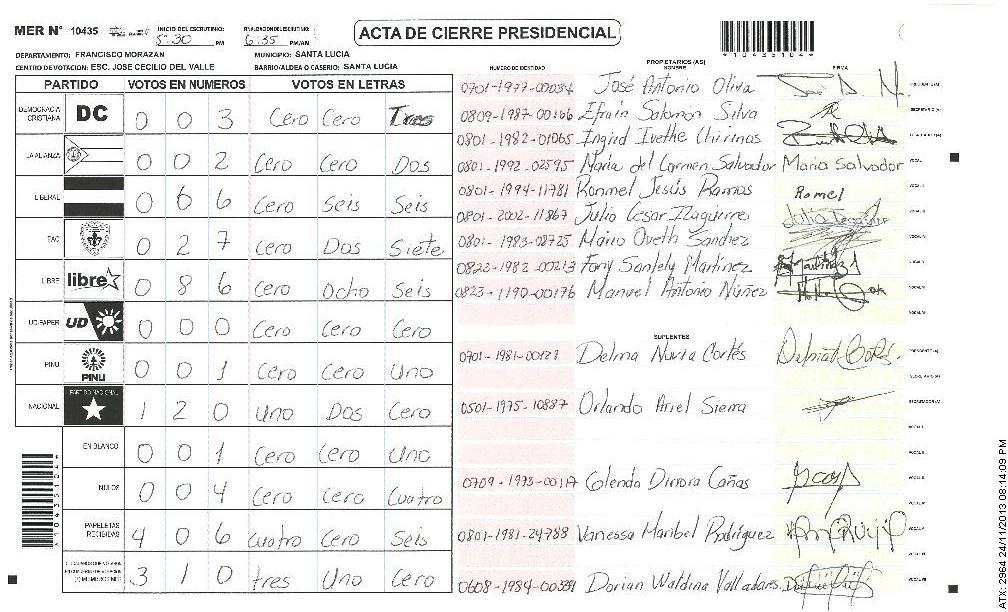 MER Nº 10435 INICIO DEL ESCRUTINIO: 5:30 PM FINALIZACION DEL ESCRUTINIO: 6:35 PM/AM
ACTA DE CIERRE PRESIDENCIAL
*10435104*
DEPARTAMENTO: FRANCISCO MORAZAN MUNICIPIO: SANTA LUCIA
CENTRO DE VOTACION: ESC. JOSE CECILIO DEL VALLE BARRIO/ALDEA O CASERIO: SANTA LUCIA
PARTIDO VOTOS EN NUMEROS VOTOS EN LETRAS
DEMOCRACIA CRISTIANA DC 0 0 3 Cero Cero Tres
LA ALIANZA 0 0 2 Cero Cero Dos
LIBERAL 0 6 6 Cero Seis Seis
PAC 0 2 7 Cero Dos Siete
LIBRE libre 0 8 6 Cero Ocho Seis
UD-FAPER UD 0 0 0 Cero Cero Cero
PINU PINU 0 0 1 Cero Cero Uno
NACIONAL PARTIDO NACIONAL 1 2 0 Uno Dos Cero
EN BLANCO 0 0 1 Cero Cero Uno
NULOS 0 0 4 Cero Cero Cuatro
PAPELETAS RECIBIDAS 4 0 6 Cuatro Cero Seis
3 1 0 tres Uno Cero
PROPIETARIOS (AS)
NUMERO DE IDENTIDAD NOMBRE FIRMA
0701-1977-00034 José Antonio Oliva PRESIDENTE (A)
0809-1987-00166 Efraín Salomón Silva SECRETARIO (A)
0801-1982-01065 Ingrid Ivethe Chirinos
0801-1992-02595 Maria del Carmen Salvador Maria Salvador VOCAL I
0801-1994-11781 Ronmel Jesús Ramos Romel VOCAL II
0801-2002-11867 Julio Cesar Izaguirre VOCAL III
0801-1983-08725 Mario Oveth Sandrez VOCAL IV
0822-1982-00213 Fany Santely Martínez Martínez VOCAL V
0823-1190-00176 Manuel Antonio Núñez VOCAL VI
SUPLENTES
0701-1981-00121 Delma Nuvia Cortés PRESIDENTE (A)
SECRETARIO (A)
0501-1975-10887 Orlando Ariel Sierra ESCRUTADOR (A)
VOCAL I
0709-1973-00117 Glenda Dinora Cañas
0801-1981-24788 Vanessa Maribel Rodríguez
0608-1984-00384 Dorian Waldina Valladares
ATX-2964 24/11/2013 08:14:09 PM